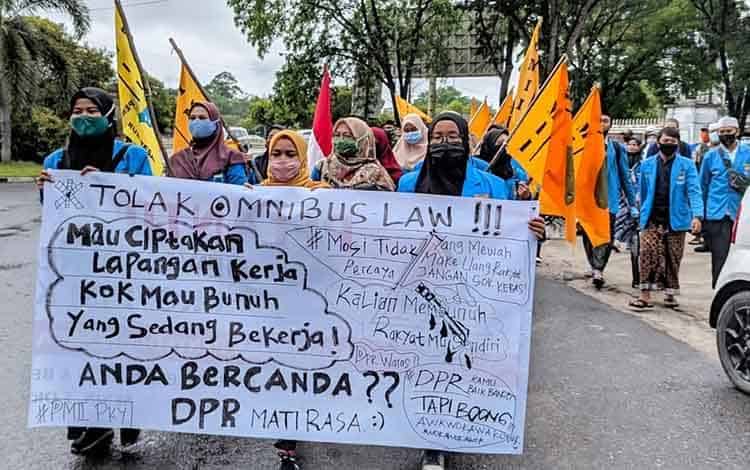 TOLAK OMNIBUS LAW !!!
Mau Ciptakan
Lapangan Kerja
Kok Mau Bunuh
Yang Sedang Bekerja!
ANDA BERCANDA ??
DPR MATI RASA :)
#PMII PKY
#Mosi Tidak
Percaya
Yang Mewah
Make Uang Rakyat
JANGAN
KERAS!
Kalian Membunuh
Rakyat Mu Sendiri
#DPR
KAMU
BAIK BANGET
TAPI BOONG